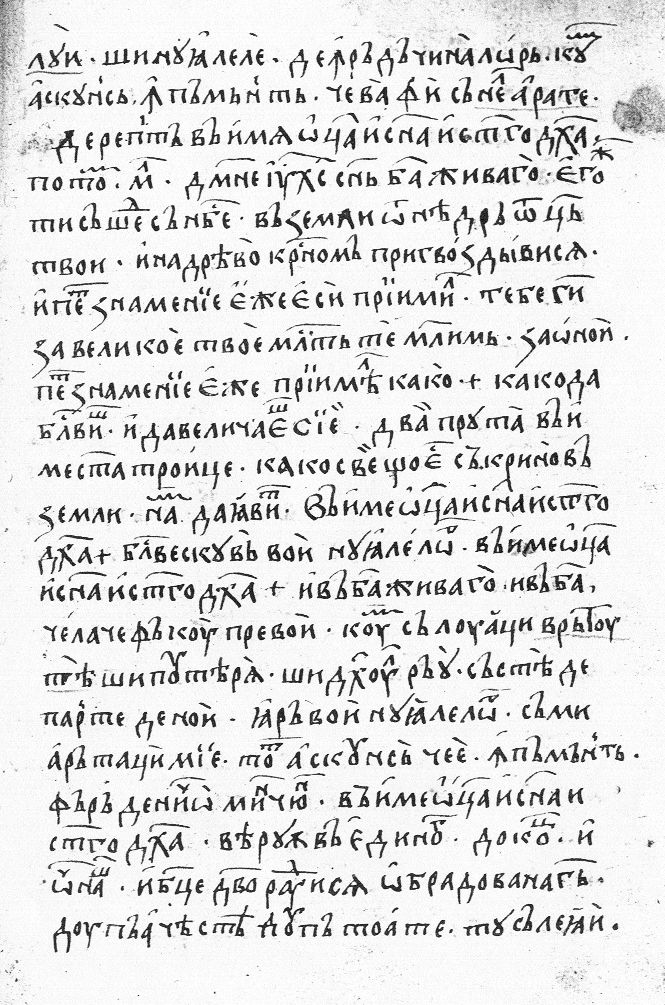 лꙋи · шинꙋꙗлеле · де аръ дъ чиналѡрь · кꙋм
аскунсь ꙟпъмънть · чева фи сънѣ арате ·
Дерептъ въ имя ѡца исна истго дха ·
по то · м · дмне іѵ хс снь ба живаго · его
ти съше сънбе · въ земли и ѡ нѣдръ ѿ ць
твои · и на дрѣво крномь пригвоздывися ·
и пе знаменіе еже еси пріими · тебе ги
за великое твое млть те млимь · за ѡной ·
пе знаменіе еже пріимѣ како + како да
блви · и да велича е сіе · два прута въ и
места троице · како свещо е съкринѡвъ
земли · на даꙗви · Въ име ѡца исна истго
дха + блвескувь вой нꙋꙗлелѡ · въ име ѡца
исна истго дха + и въ ба живаго · и въ ба,
челаче фъкоꙋ превой · коꙋ съ лоуаци врътоу
тѣ ши путѣря · ши дхоу ръꙋ · съ стѣ де
парте де ной · ꙗръ вой нꙋꙗлелѡ · съ ми
арътаци міе · то аскунсь чее · ꙟпъмънть ·
фъръ де ниѡ минчю · въ име ѡца исна и
стго дха · вѣрꙋѫ въ едино · до ко · и
ѡна · и бце дво раꙋися ѡбрадована гь ·
доупъ ачѣстѣ дупъ тоате · ту съ леꙗй ·